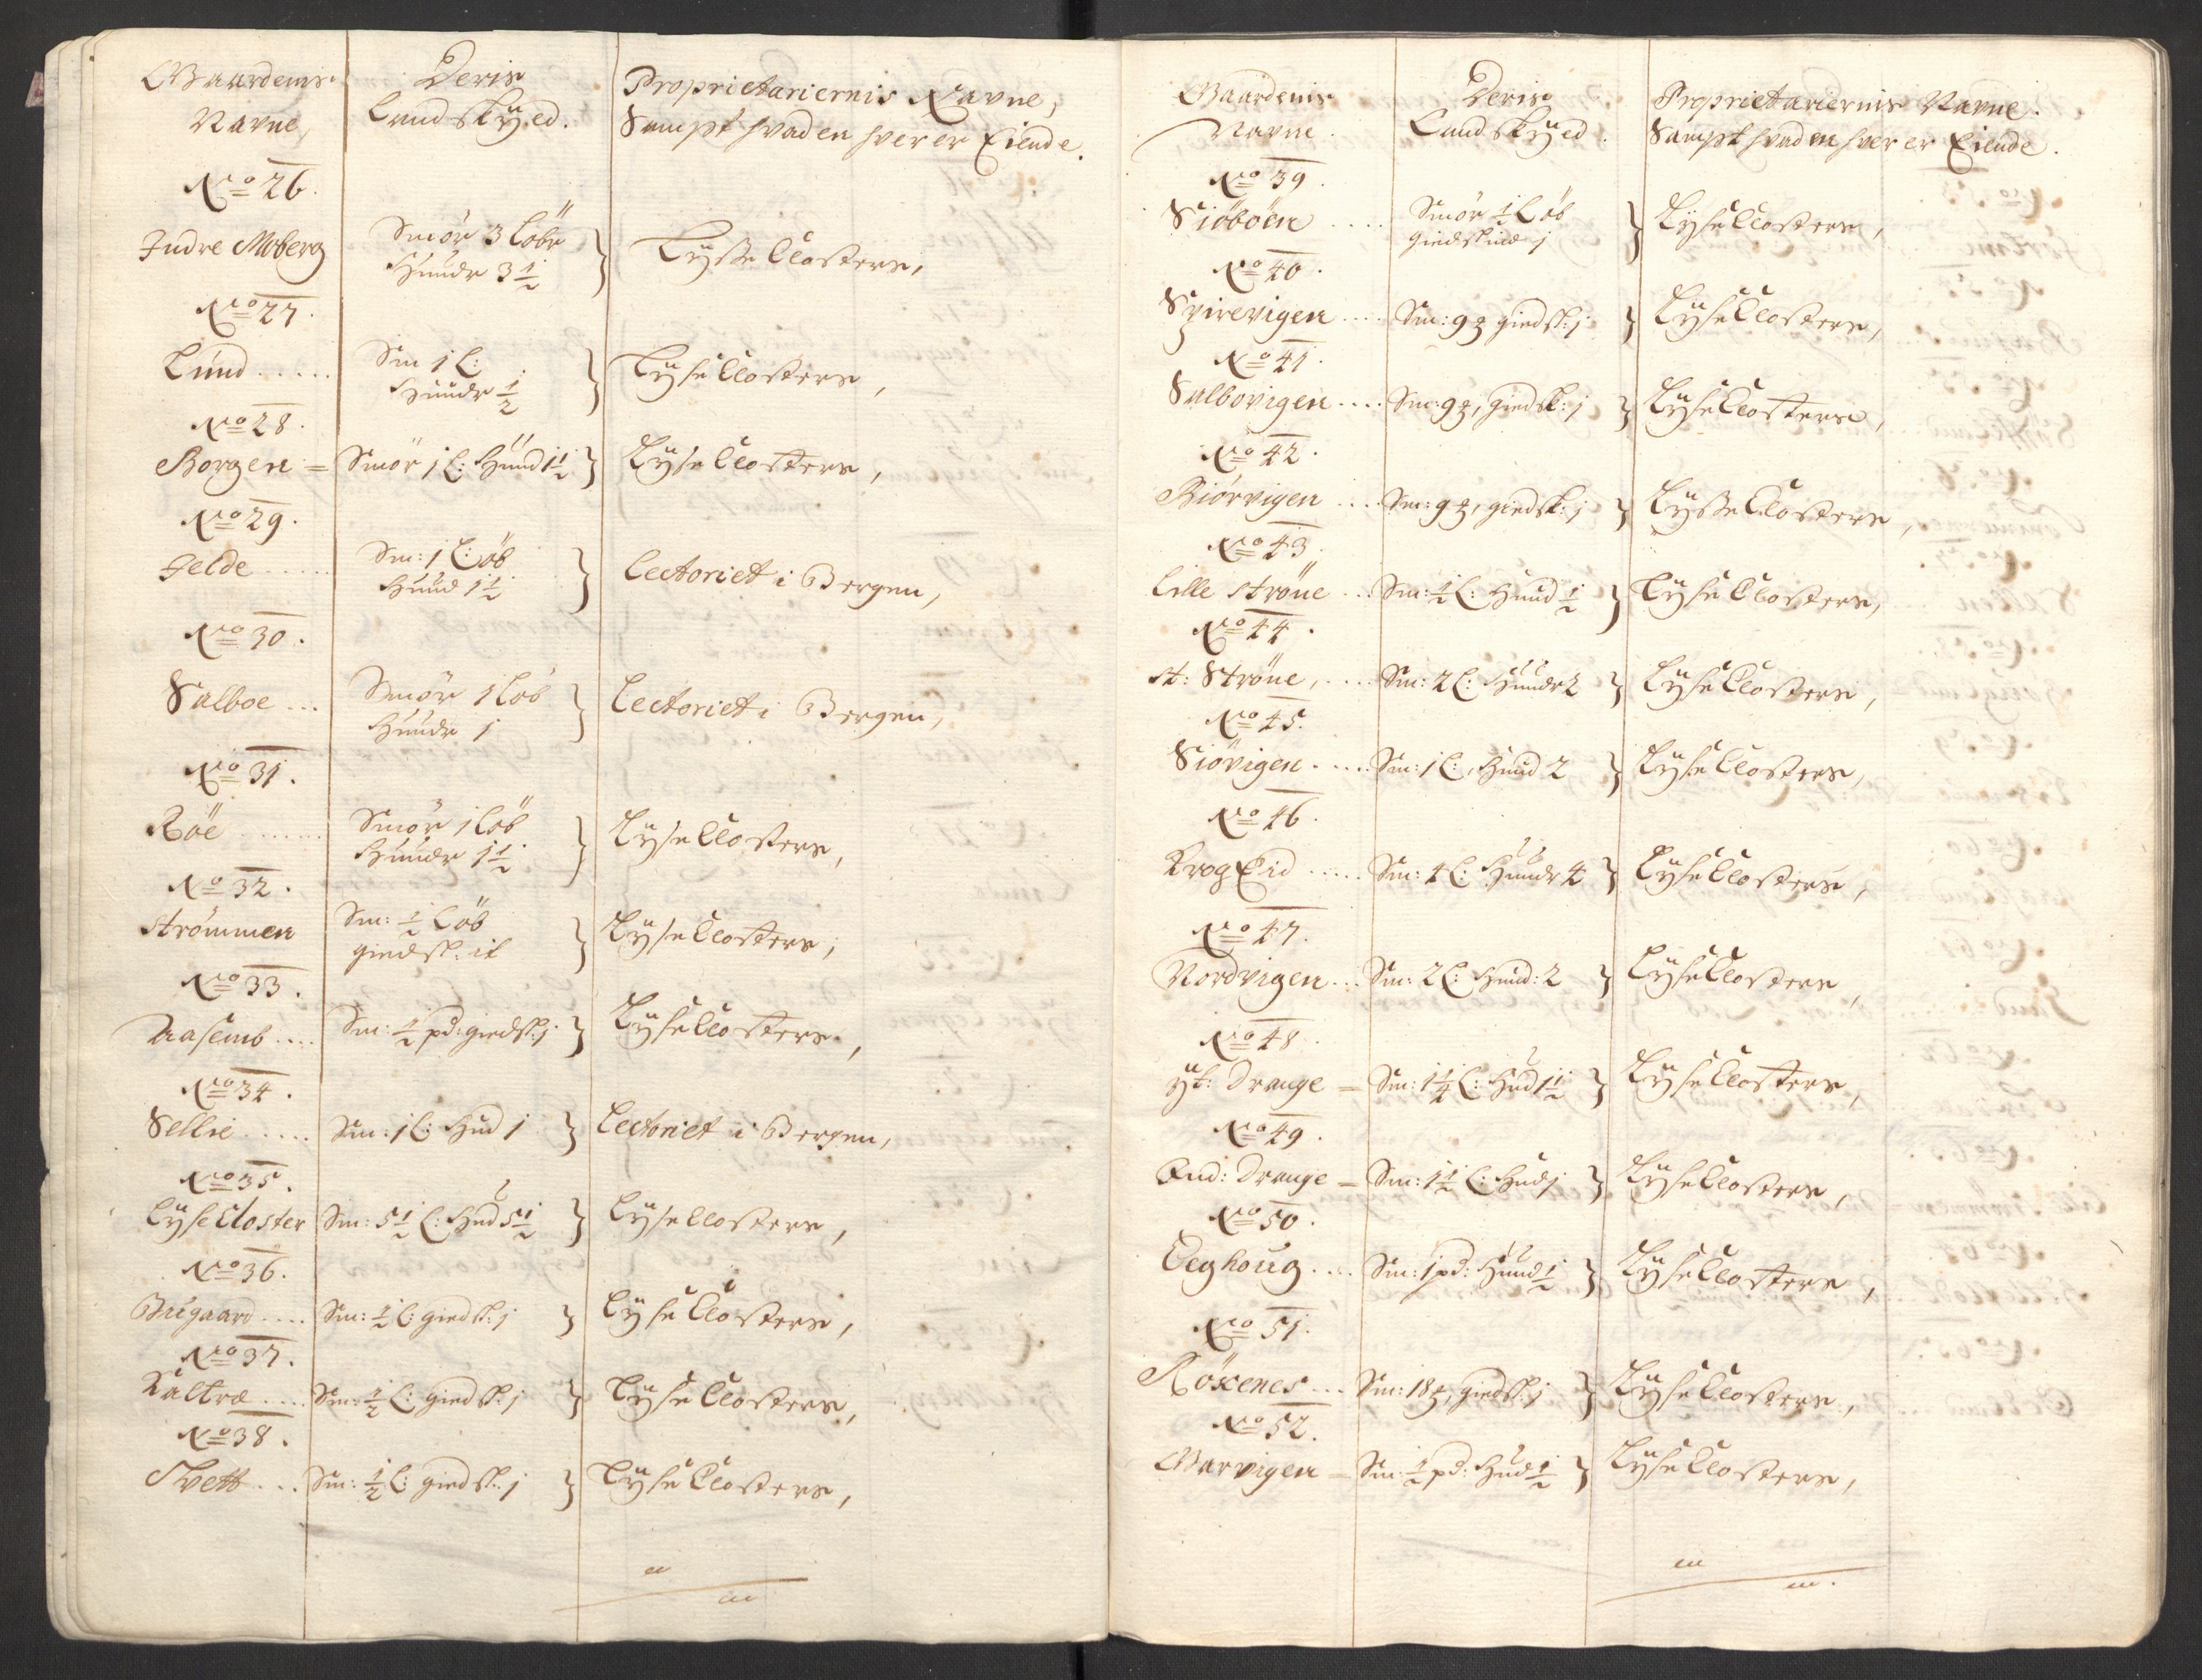 Gaardenis
Navne,
Deris
Landskÿed.
Proprietariernis Navne,
Sampt hvad en hver er Eiende.
No 26.
Indre Moberg
Smör 3 Löbe
Huude 3 1/2
Lÿsse Closters,
No 27.
Lund .....
Sm 1 L:
Huude 1/2
Lÿse Closters,
No 28.
Borgen = Smör 1 L: Huud 1 1/2 Lÿse Closters,
No 29.
Jelde .....
Sm: 1 Löb
Huud 1 1/2
Lectoriet i Bergen,
No 30.
Valboe ...
Smör 1 Löb
Huude 1
Lectoriet i Bergen,
No 31.
Röe .......
Smör 1 Löb
Huude 1 1/2
Lÿse Closters,
No 32.
Strömmen
Sm: 1/2 Löb
giedsk: it
Lÿse Closters,
No 33.
Aasemb .... Sm: 1/2 pd: giedsk: 1 Lÿse Closters,
No 34.
Sellie ..... Sm: 1 L: Hud 1 Lectoriet i Bergen,
No 35.
Lÿse Closter Sm: 5 1/2 L: Hud 5 1/2 Lÿse Closters,
No 36.
Bugaard .... Sm: 1/2 L: giedsk: 1 Lÿse Closters,
No 37.
Kaltræ .... Sm: 1/2 L: giedsk: 1 Lÿse Closters,
No 38.
Tvett ... Sm: 1/2 L: giedsk: 1 Lÿse Closters,
Gaardenis
Navne.
Deris
Landskÿed.
Proprietariernis Navne.
Sampt hvad en hver er Eiende.
No 39.
Siöböen ....
Smör 1/2 Löb
giedskind 1
Lÿse Closters,
No 40.
Spirevigen .... Sm: 9 ℔ giedsk: 1 Lÿse Closters,
No 41.
Salbovigen .... Sm: 9 ℔, giedsk: 1 Lÿse Closters,
No 42.
Biörvigen .... Sm: 9 ℔, giedsk: 1 Lÿsse Closters,
No 43.
Lille Ströne ... Sm: 1/2 L: Huud 1/2 Lÿse Closters,
No 44.
St: Ströne, .... Sm: 2 L: Huude 2 Lÿse Closters,
No 45.
Siövigen ..... Sm: 1 L:, Huud 2 Lÿse Closters,
No 46.
KrogEid ..... Sm: 4 L: Huude 4 Lÿse Closters,
No 47.
Nordvigen ... Sm: 2 L: Huud: 2 Lÿse Closters,
No 48.
ÿt: Drange = Sm: 1 1/4 L: Hud 1 1/2 Lÿse Closters,
No 49.
Ind: Drange = Sm: 1 1/2 L: Hud 1 Lÿse Closters,
No 50.
Eeghoug .... Sm: 1 pd: Huud 1/2 Lÿse Closters,
No 51.
Röxenes ... Sm: 18 ℔, giedsk: 1 Lÿse Closters,
No 52.
Marvigen = Sm: 1/2 pd: Hud 1/2 Lÿse Closters,